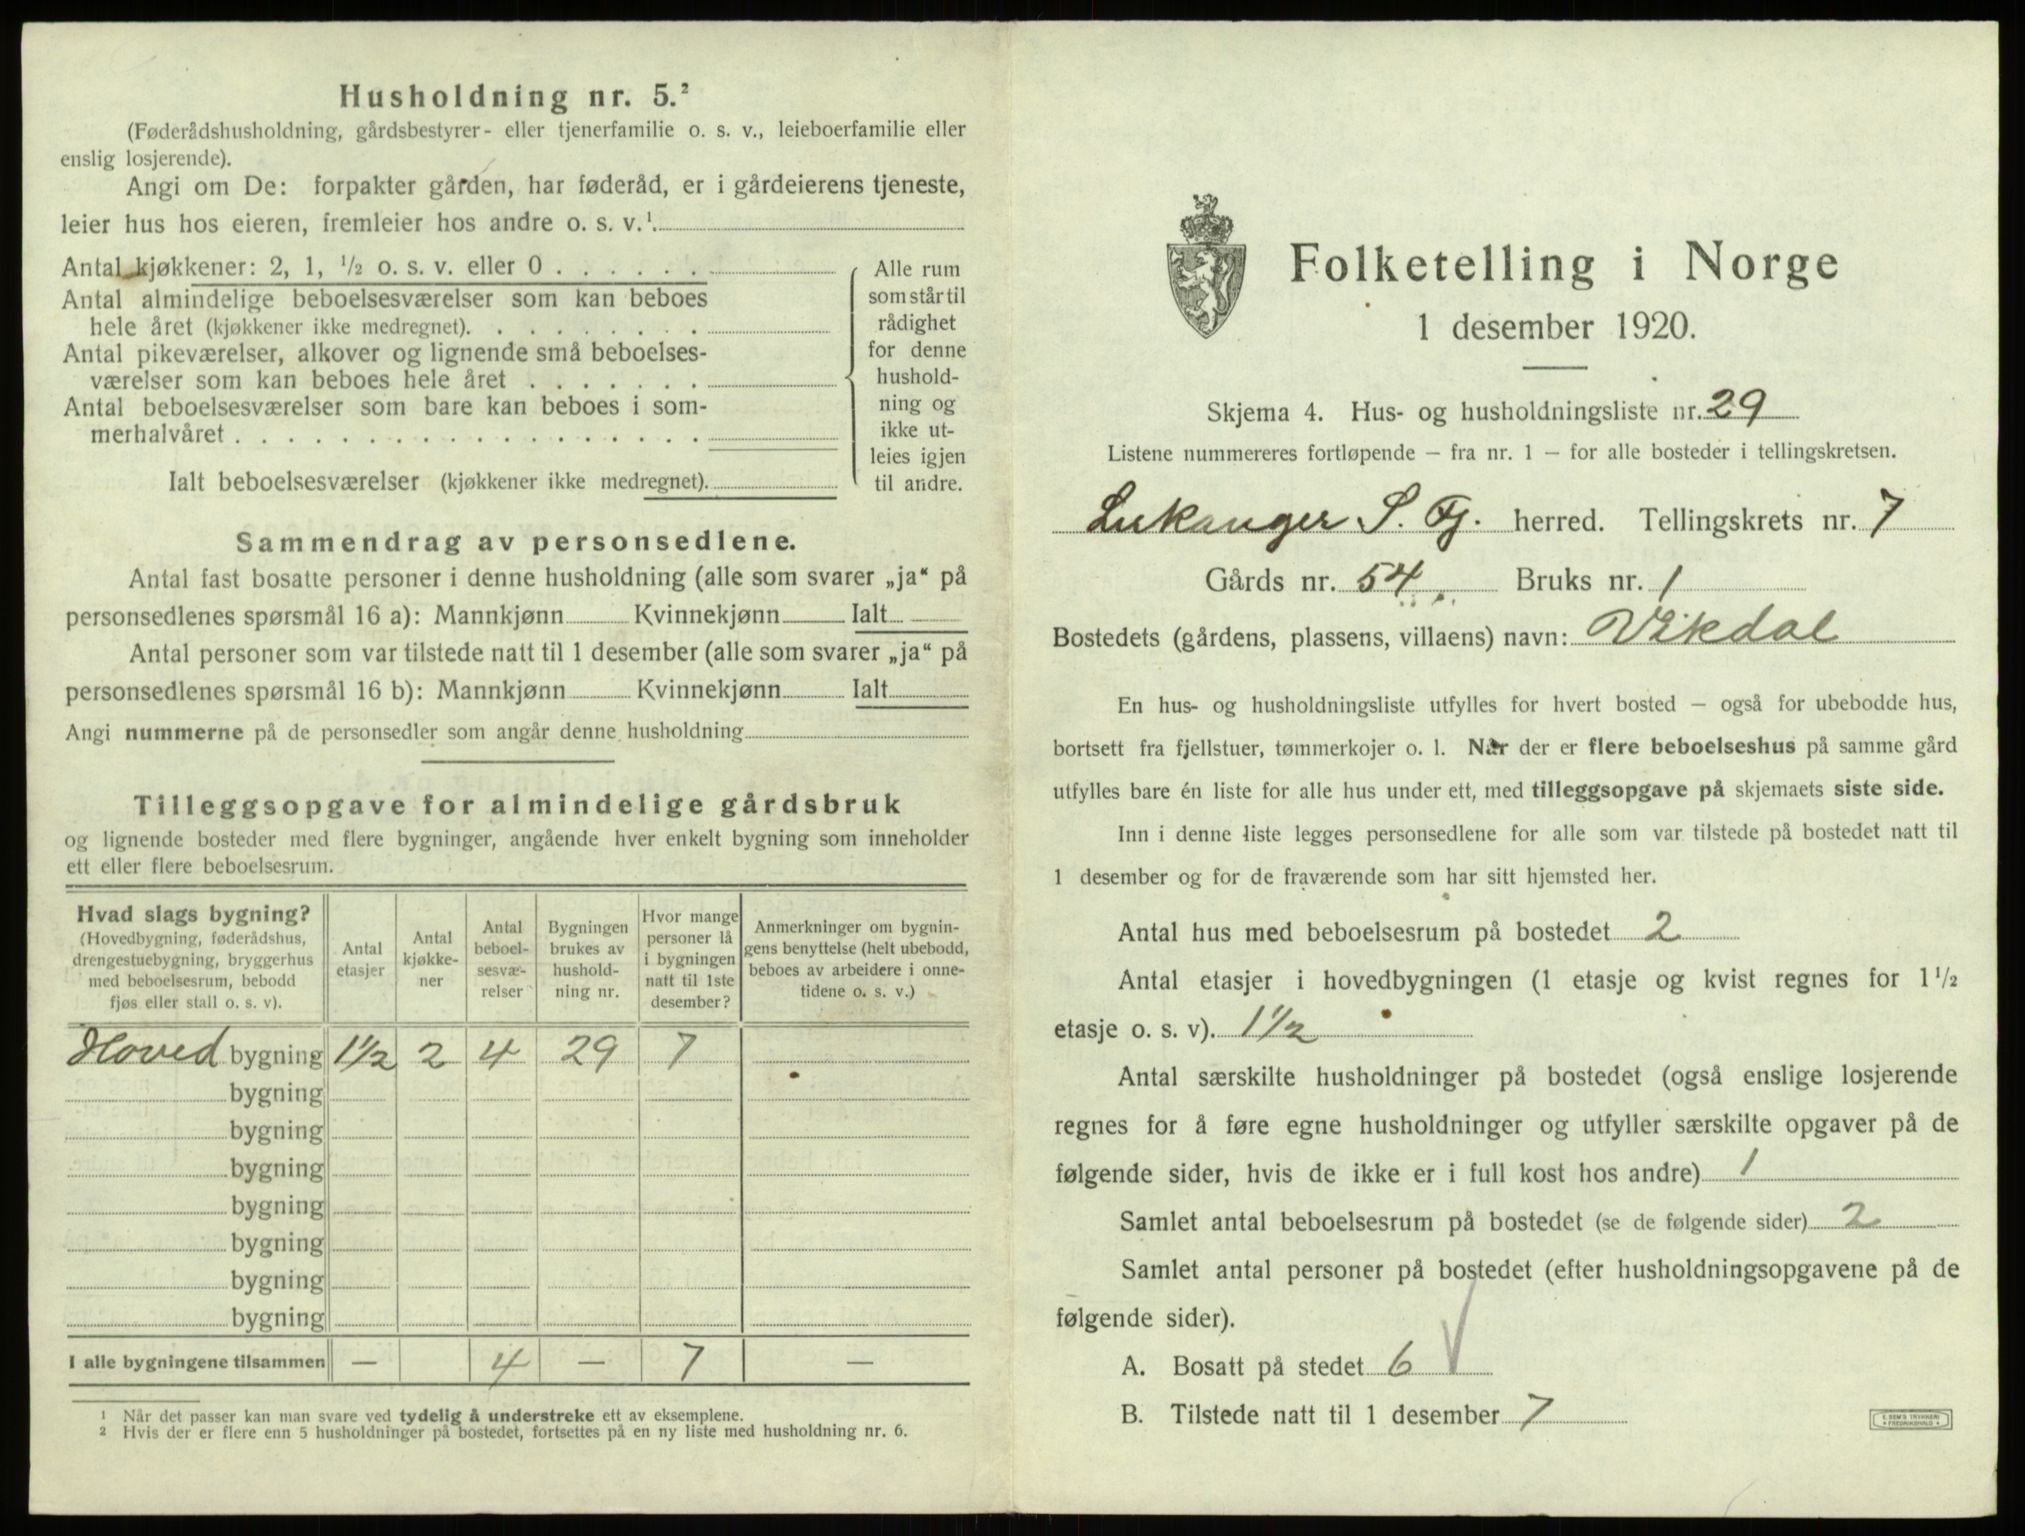 Husholdning nr. 5.²
(Føderådshusholdning, gårdsbestyrer- eller tjenerfamilie o. s. v., leieboerfamilie eller
enslig losjerende).
Angi om De: forpakter gården, har føderåd, er i gårdeierens tjeneste,
leier hus hos eieren, fremleier hos andre o. s. v.¹
Antal kjøkkener: 2, 1, ½ o. s. v. eller 0 . . . . . .
Antal almindelige beboelsesværelser som kan beboes
hele året (kjøkkener ikke medregnet). . . . . . . . .
Antal pikeværelser, alkover og lignende små beboelses-
værelser som kan beboes hele året . . . . . . .
Antal beboelsesværelser som bare kan beboes i som-
merhalvåret . . . . . . . . . . . . . . . . . .
Ialt beboelsesværelser (kjøkkener ikke medregnet).
Alle rum
som står til
rådighet
for denne
hushold-
ning og
ikke ut-
leies igjen
til andre.
Sammendrag av personsedlene.
Antal fast bosatte personer i denne husholdning (alle som svarer „ja“ på
personsedlenes spørsmål 16 a): Mannkjønn Kvinnekjønn Ialt
Antal personer som var tilstede natt til 1 desember (alle som svarer „ja“ på
personsedlenes spørsmål 16 b): Mannkjønn Kvinnekjønn Ialt
Angi nummerne på de personsedler som angår denne husholdning
Tilleggsopgave for almindelige gårdsbruk
og lignende bosteder med flere bygninger, angående hver enkelt bygning som inneholder
ett eller flere beboelsesrum.
Hvad slags bygning?
(Hovedbygning, føderådshus,
drengestuebygning, bryggerhus
med beboelsesrum, bebodd
fjøs eller stall o. s. v).
Antal
etasjer
Antal
kjøkke-
ner
Antal
beboel-
sesvæ-
relser
Bygningen
brukes av
hushold-
ning nr.
Hvor mange
personer lå
i bygningen
natt til 1ste
desember?
Anmerkninger om bygnin-
gens benyttelse (helt ubebodd,
beboes av arbeidere i onne-
tidene o. s. v.)
Hoved bygning 1½ 2 4 29 7
bygning
bygning
bygning
bygning
bygning
bygning
bygning
I alle bygningene tilsammen — 4 — 7 —
¹ Når det passer kan man svare ved tydelig å understreke ett av eksemplene.
² Hvis der er flere enn 5 husholdninger på bostedet, fortsettes på en ny liste med husholdning nr. 6.
Folketelling i Norge
1 desember 1920.
Skjema 4. Hus- og husholdningsliste nr. 29
Listene nummereres fortløpende — fra nr. 1 — for alle bosteder i tellingskretsen.
Leikanger S. Fj. herred. Tellingskrets nr. 7
Gårds nr. 54 Bruks nr. 1
Bostedets (gårdens, plassens, villaens) navn: Vikdal
En hus- og husholdningsliste utfylles for hvert bosted — også for ubebodde hus,
bortsett fra fjellstuer, tømmerkojer o. l. Når der er flere beboelseshus på samme gård
utfylles bare én liste for alle hus under ett, med tilleggsopgave på skjemaets siste side.
Inn i denne liste legges personsedlene for alle som var tilstede på bostedet natt til
1 desember og for de fraværende som har sitt hjemsted her.
Antal hus med beboelsesrum på bostedet 2
Antal etasjer i hovedbygningen (1 etasje og kvist regnes for 1½
etasje o. s. v). 1½
Antal særskilte husholdninger på bostedet (også enslige losjerende
regnes for å føre egne husholdninger og utfyller særskilte opgaver på de
følgende sider, hvis de ikke er i full kost hos andre) 1
Samlet antal beboelsesrum på bostedet (se de følgende sider) 2
Samlet antal personer på bostedet (efter husholdningsopgavene på de
følgende sider).
A. Bosatt på stedet 6
B. Tilstede natt til 1 desember 7
E. SEM'S TRYKKERI
FREDRIKSHALD